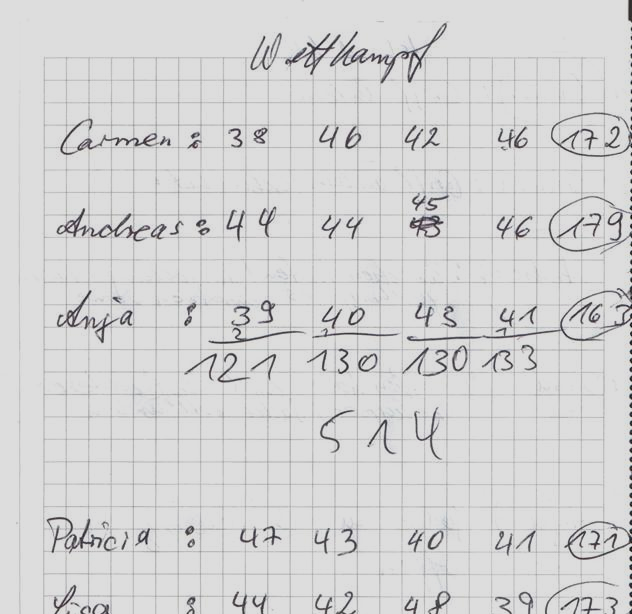 Wettkampf
Carmen : 38 46 42 46 172
45
Andreas : 44 44 43 46 179
Anja : 39 40 43 41 163
2 1 1
121 130 130 133
514
Patricia : 47 43 40 41 171
: 44 42 48 39 173